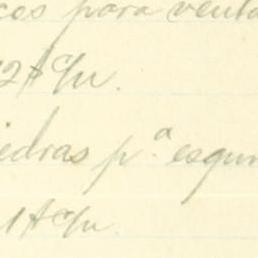 cos para venta
2 $ c/u.
iedras pª esqui
1 $ c/u.